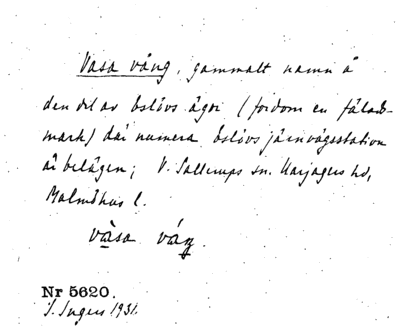 Vasa vång, gammalt namn å
den del av Eslövs ägor (fordom en fälads-
mark) där numera Eslövs järnvägsstation
är belägen; V. Sallerups sn. Harjagers hd,
Malmöhus l.
vàsa váŋ.
Nr 5620.
I. Ingers 1931.